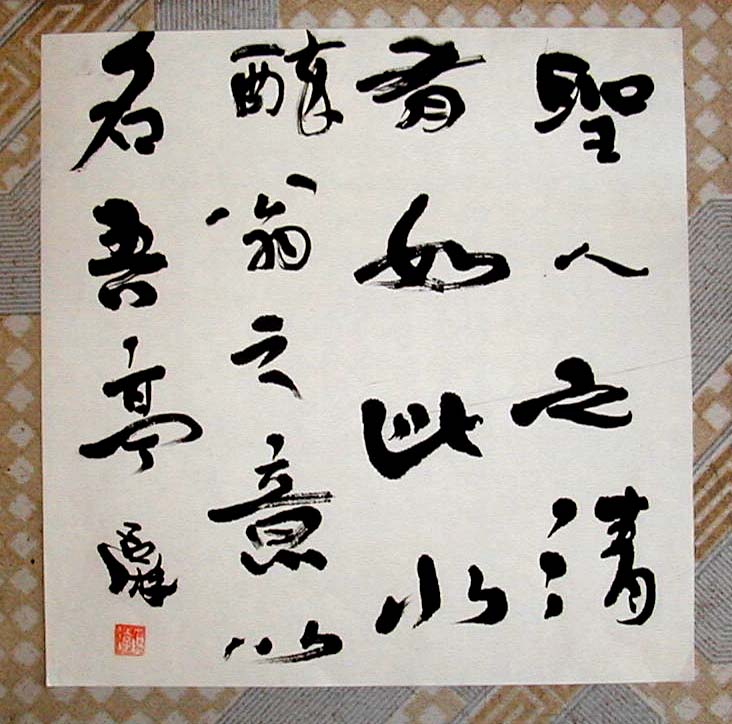 聖人之清
有如此水
醉翁之意以
名吾亭